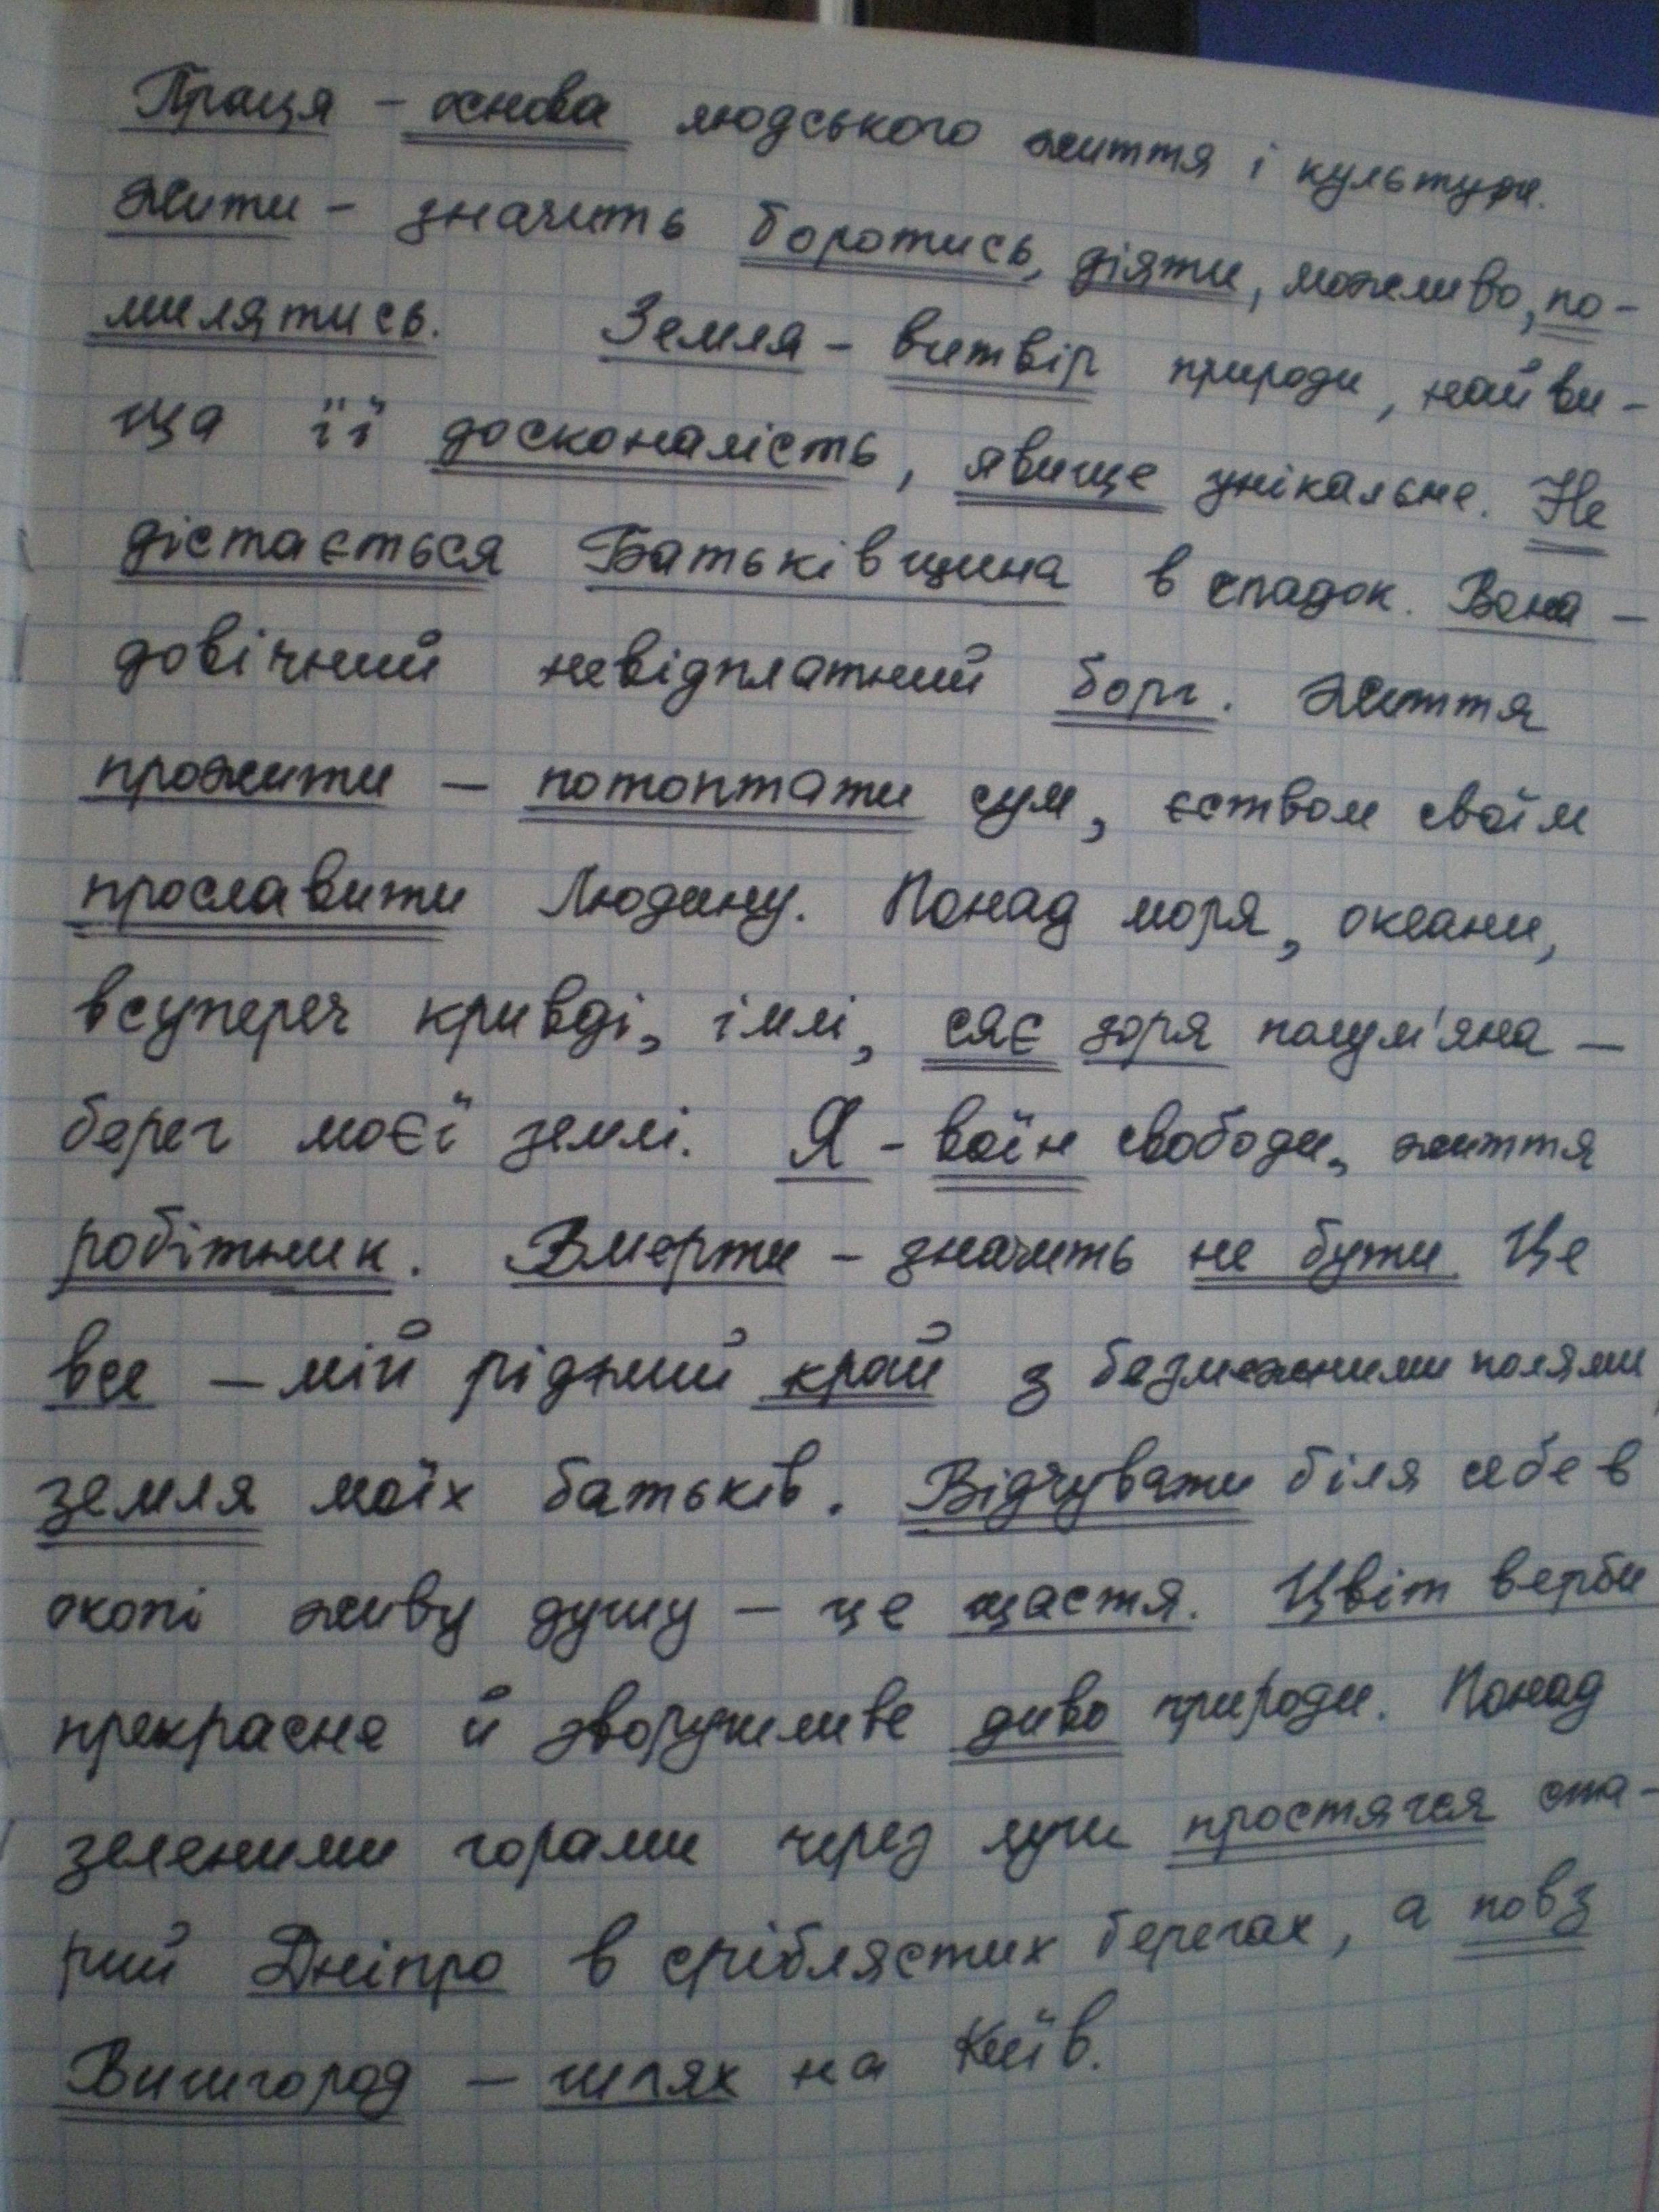 Праця - основа людського життя і культури.
Жити - значить боротись, діяти, можливо, по-
милятись. Земля - витвір природи, найви-
ща її досконалість, явище унікальне. Не
дістається Батьківщина в спадок. Вона -
довічний невідплатний борг. Життя
прожити - потоптати сум, єством своїм
прославити Людину. Понад моря, океани,
всупереч кривді, імлі, сяє зоря полум'яна -
берег моєї землі. Я - воїн свободи, життя
робітник. Вмерти - значить не бути. Це
все - мій рідний край з безмежними полями
земля моїх батьків. Відчувати біля себе в
окопі живу душу - це щастя. Цвіт верби
прекрасне й зворушливе диво природи. Понад
зеленими горами через луги простягся ста-
рий Дніпро в сріблястих берегах, а повз
Вишгород - шлях на Київ.